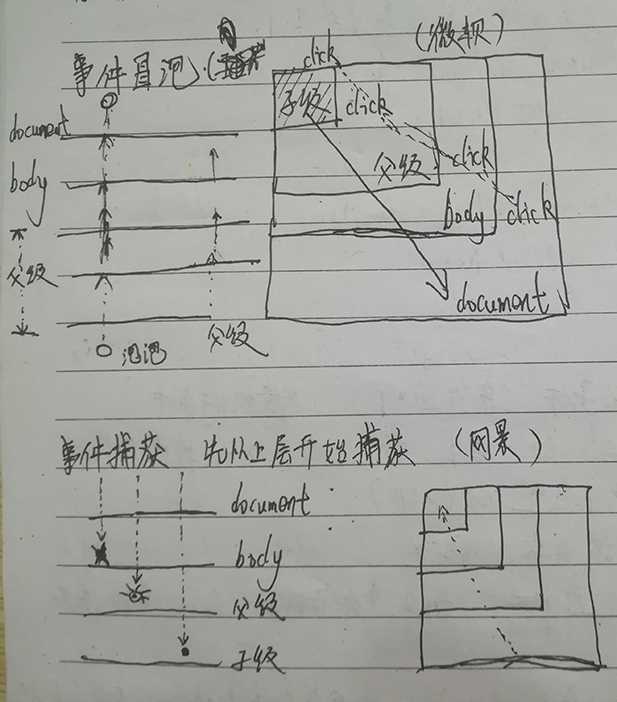 事件冒泡 (
(微软)
document
body
父级
泡泡
父级
click
子级
click
父级
click
body
click
document
事件捕获 先从上层开始捕获 (网景)
document
body
父级
子级